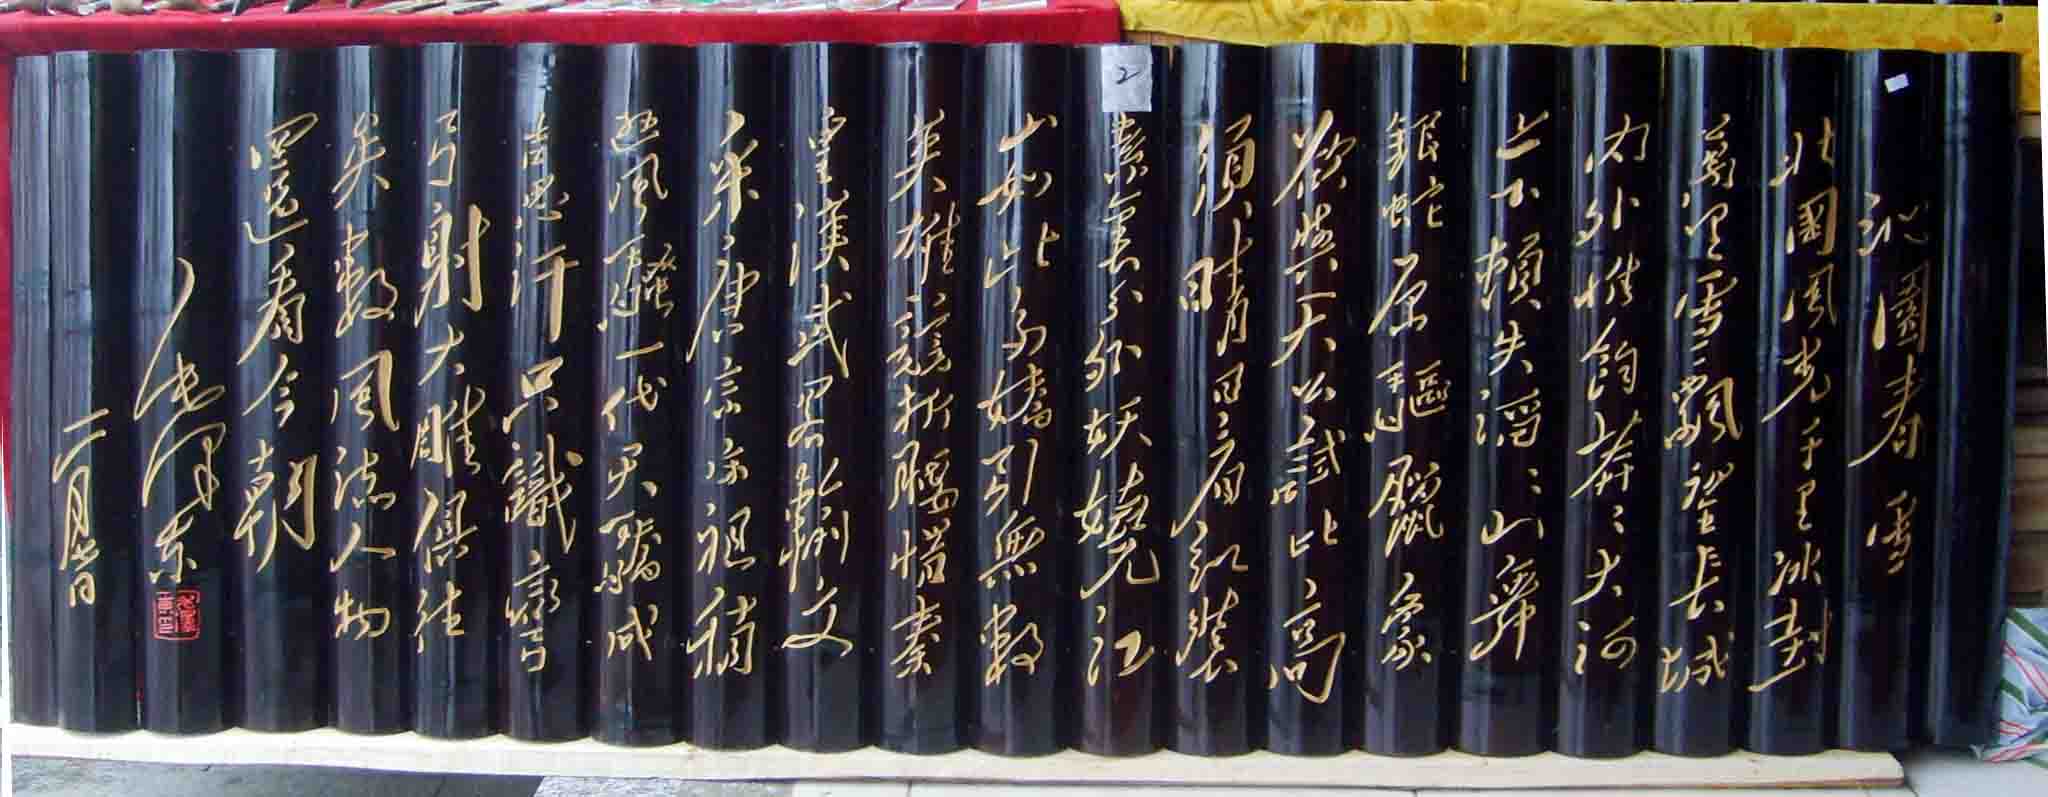 沁園春 雪
北國風光千里冰封
萬里雪飄望長城
內外惟餘莽〻大河
上下頓失滔〻山舞
銀蛇原驅臘象
欲與天公試比高
須晴日看紅裝
2
素裹分外妖嬈江
山如此多嬌引無數
英雄競折腰惜秦
皇漢武略輸文
采唐宗宋祖稍
遜風騷一代天驕成
吉思汗只識彎
弓射大雕俱往
矣數風流人物
還看今朝
毛澤東